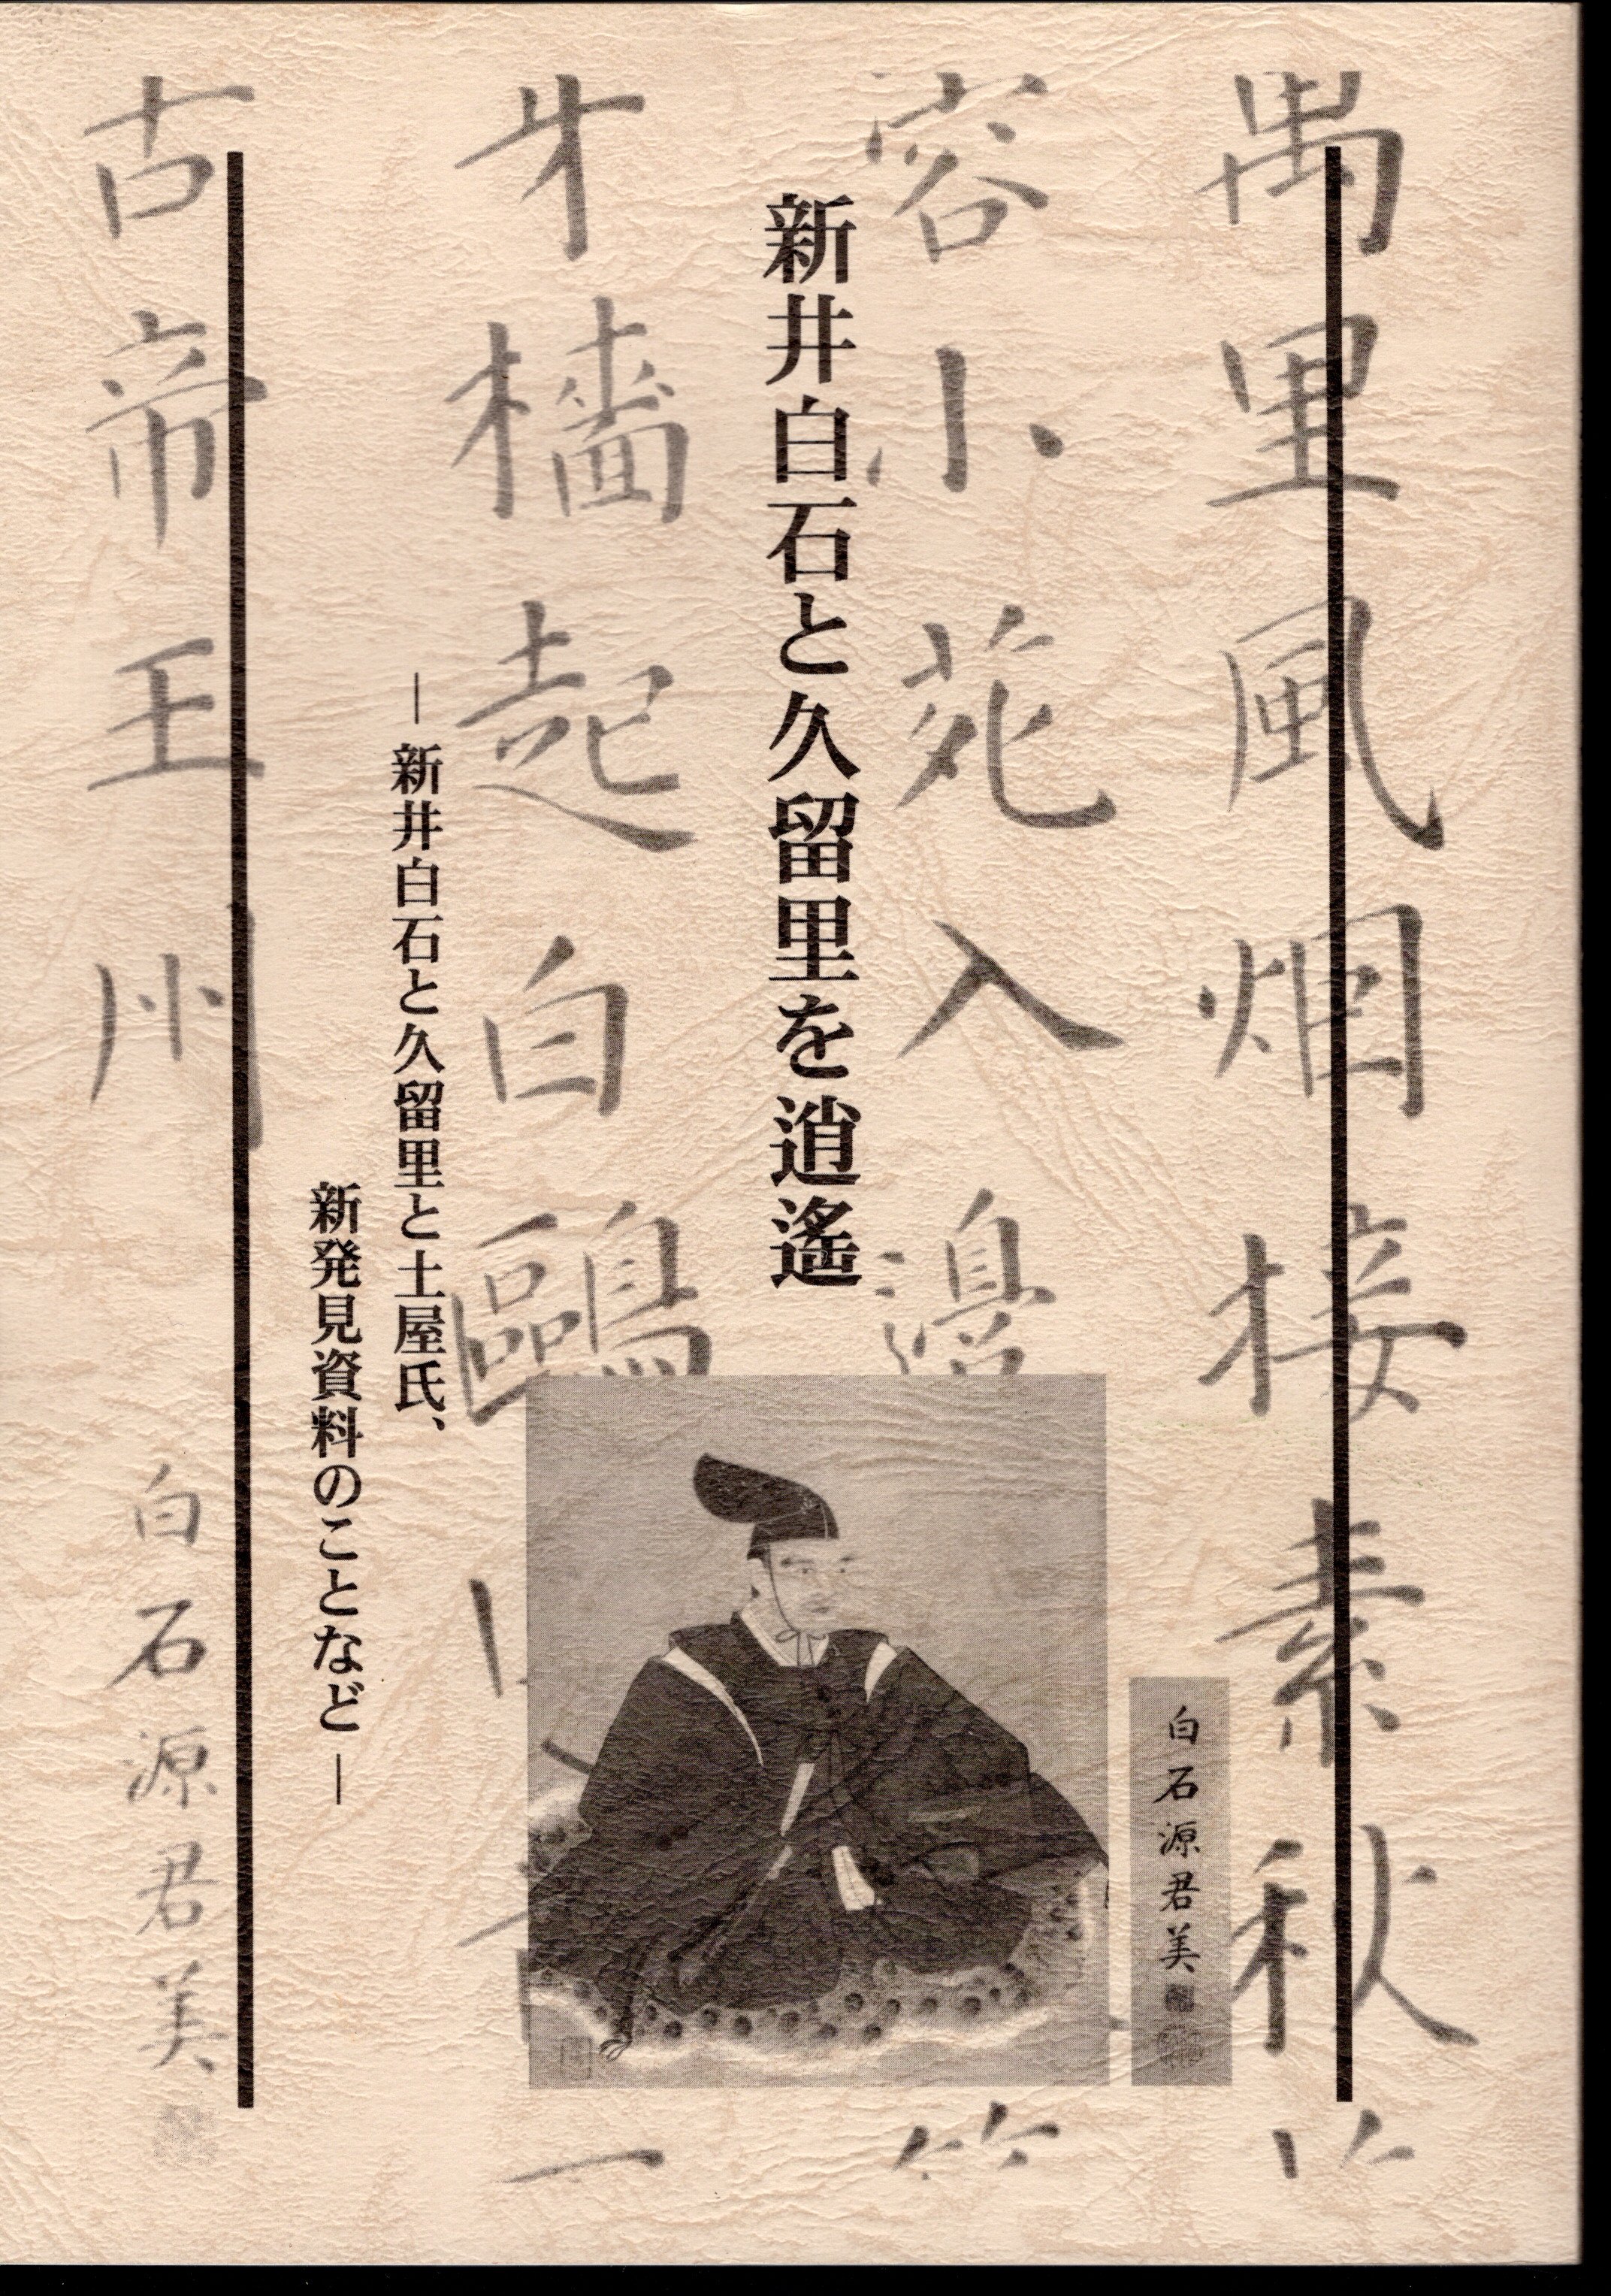 萬里風烟接素秋
蓉小苑入邊
新井白石と久留里を逍遙
牙檣起白鷗
―新井白石と久留里と土屋氏、
新発見資料のことなど―
古帝王州
白石源君美
白石源君美